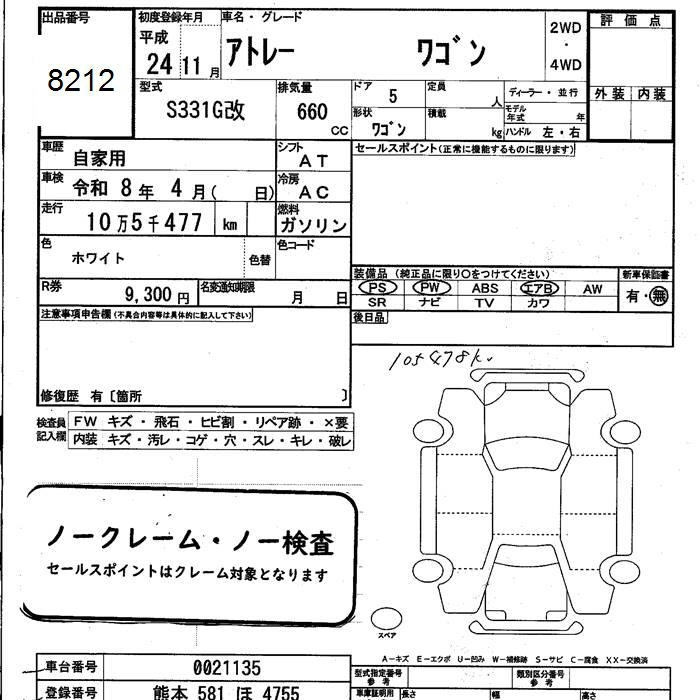 出品番号 初度登録年月 車名・グレード 評価点
8212 平成 24 11月 アトレー ワゴン 2WD・4WD
型式 排気量 ドア 定員 ディーラー・並行 外装 内装
S331G改 660 CC 5 人 モデル年式 年
形状 積載 ハンドル 左・右
ワゴン kg
車歴 自家用 シフト AT セールスポイント(正常に機能するものに限ります)
車検 令和 8年 4月( 日) 冷房 AC
走行 10万5千477 km 燃料 ガソリン
色 ホワイト 色替 色コード
装備品(純正品に限り○をつけてください) 新車保証書
R券 9,300円 名変通知期限 月 日 PS PW ABS エアB AW 有・無
SR ナビ TV カワ
注意事項申告欄(不具合内容等は具体的に記入して下さい) 後日品
105478k
修復歴 有〔箇所 〕
検査員記入欄 FW キズ・飛石・ヒビ割・リペア跡・×要
内装 キズ・汚レ・コゲ・穴・スレ・キレ・破レ
ノークレーム・ノー検査
セールスポイントはクレーム対象となります
スペア
A-キズ E-エクボ U-凹み W-補修跡 S-サビ C-腐食 XX-交換済
車台番号 0021135 型式指定番号 参考 類別区分番号 参考
登録番号 熊本 581 ほ 4755 車庫証明用 長さ 幅 高さ